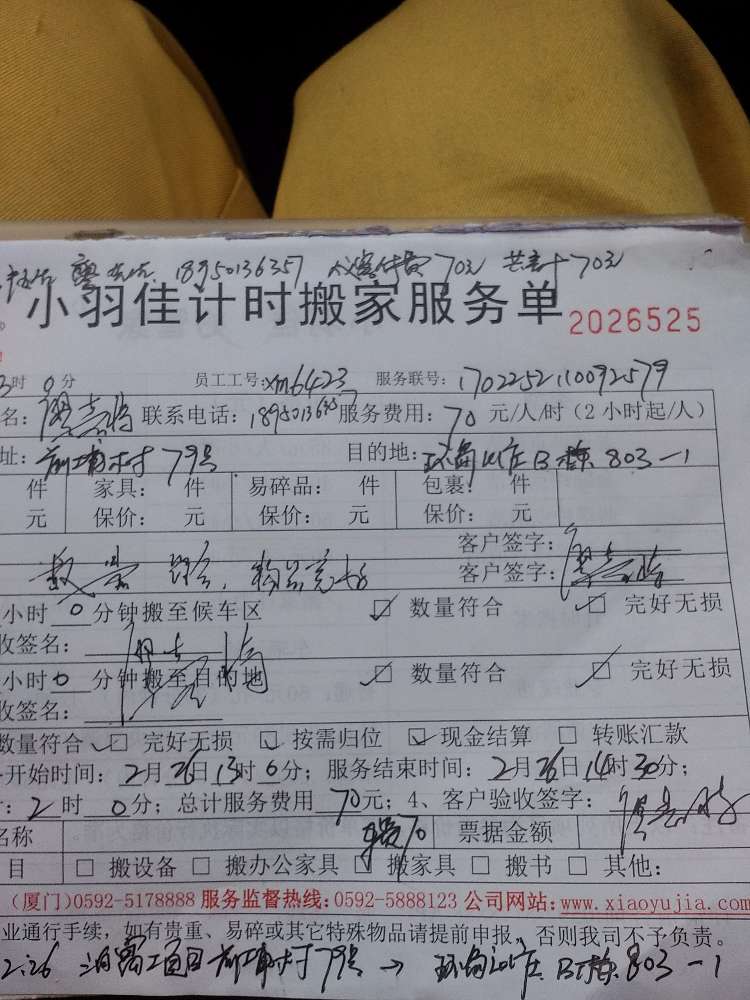 18950136357 付费70元 共计70元
小羽佳计时搬家服务单 2026525
时0分 员工工号:xm6423 服务联号:1702252110092579
名: 联系电话:18950136357 服务费用:70元/人/时(2小时起/人)
址:前埔村79号 目的地: B栋803-1
件 家具: 件 易碎品: 件 包裹: 件
元 保价: 元 保价: 元 保价: 元
客户签字:
客户签字:
小时0分钟搬至候车区 ☑ 数量符合 ☑ 完好无损
收签名:
小时0分钟搬至目的地 ☑ 数量符合 ☑ 完好无损
收签名:
数量符合 ☑ 完好无损 ☑ 按需归位 ☑ 现金结算 □ 转账汇款
开始时间:2月26日13时0分;服务结束时间:2月26日14时30分;
:2时0分;总计服务费用70元;4、客户验收签字:
名称 70 票据金额
目 □ 搬设备 □ 搬办公家具 □ 搬家具 □ 搬书 □ 其他:
(厦门)0592-5178888 服务监督热线:0592-5888123 公司网站:www.xiaoyujia.com
业通行手续,如有贵重、易碎或其它特殊物品请提前申报,否则我司不予负责。
2.26 前埔村79号 → B栋803-1